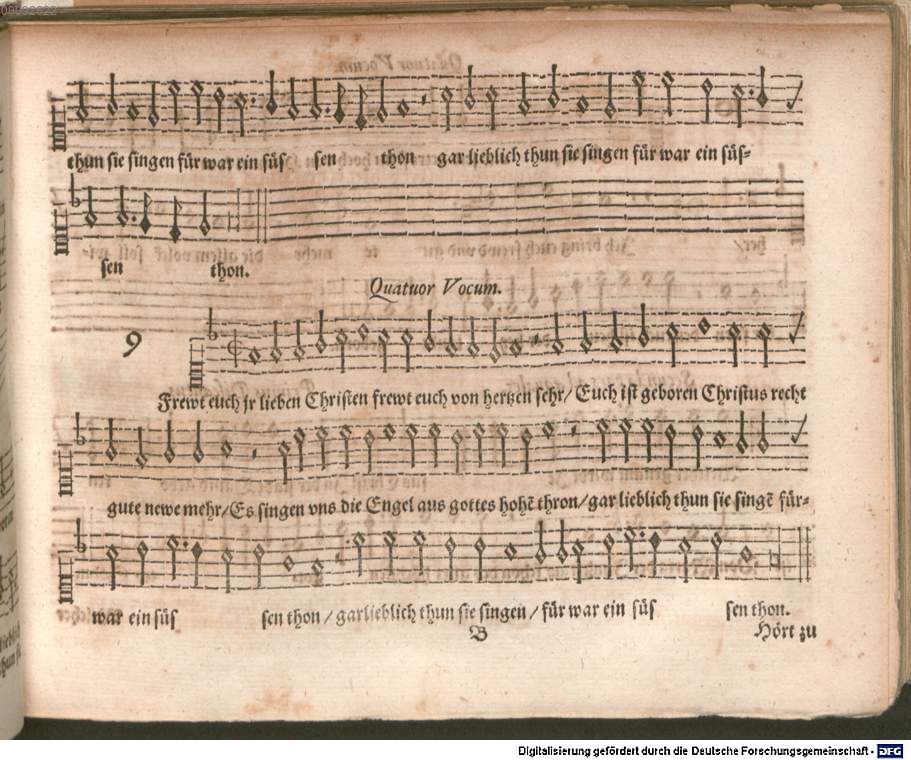 thun sie singen für war ein süs sen thon gar lieblich thun sie singen für war ein süs-
sen thon.
Quatuor Vocum.
9
Frewt euch jr lieben Christen frewt euch von hertzen sehr/ Euch ist geboren Christus recht
gute newe mehr/ Es singen vns die Engel aus gottes hohē thron/ gar lieblich thun sie singē für-
war ein süs sen thon/ garlieblich thun sie singen/ für war ein süs sen thon.
B
Hört zu
Digitalisierung gefördert durch die Deutsche Forschungsgemeinschaft - DFG